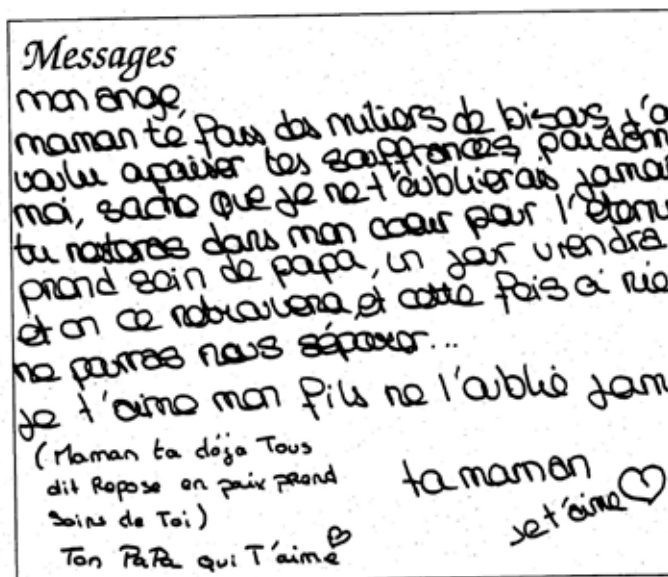 Messages
mon ange
maman te fais des miliers de bisous j'a
voulu apaiser tes souffrances pardonn
moi, sache que je ne t'oublierais jamai
tu resteras dans mon coeur pour l'etern
prend soin de papa, un jour viendra
et on ce retrouvera, et cette fois ci rie
ne pourras nous séparer...
je t'aime mon fils ne l'oublie jam
(Maman ta déja Tous
dit Repose en paix prend
Soins de Toi)
Ton PaPa qui T'aime
ta maman
je t'aime